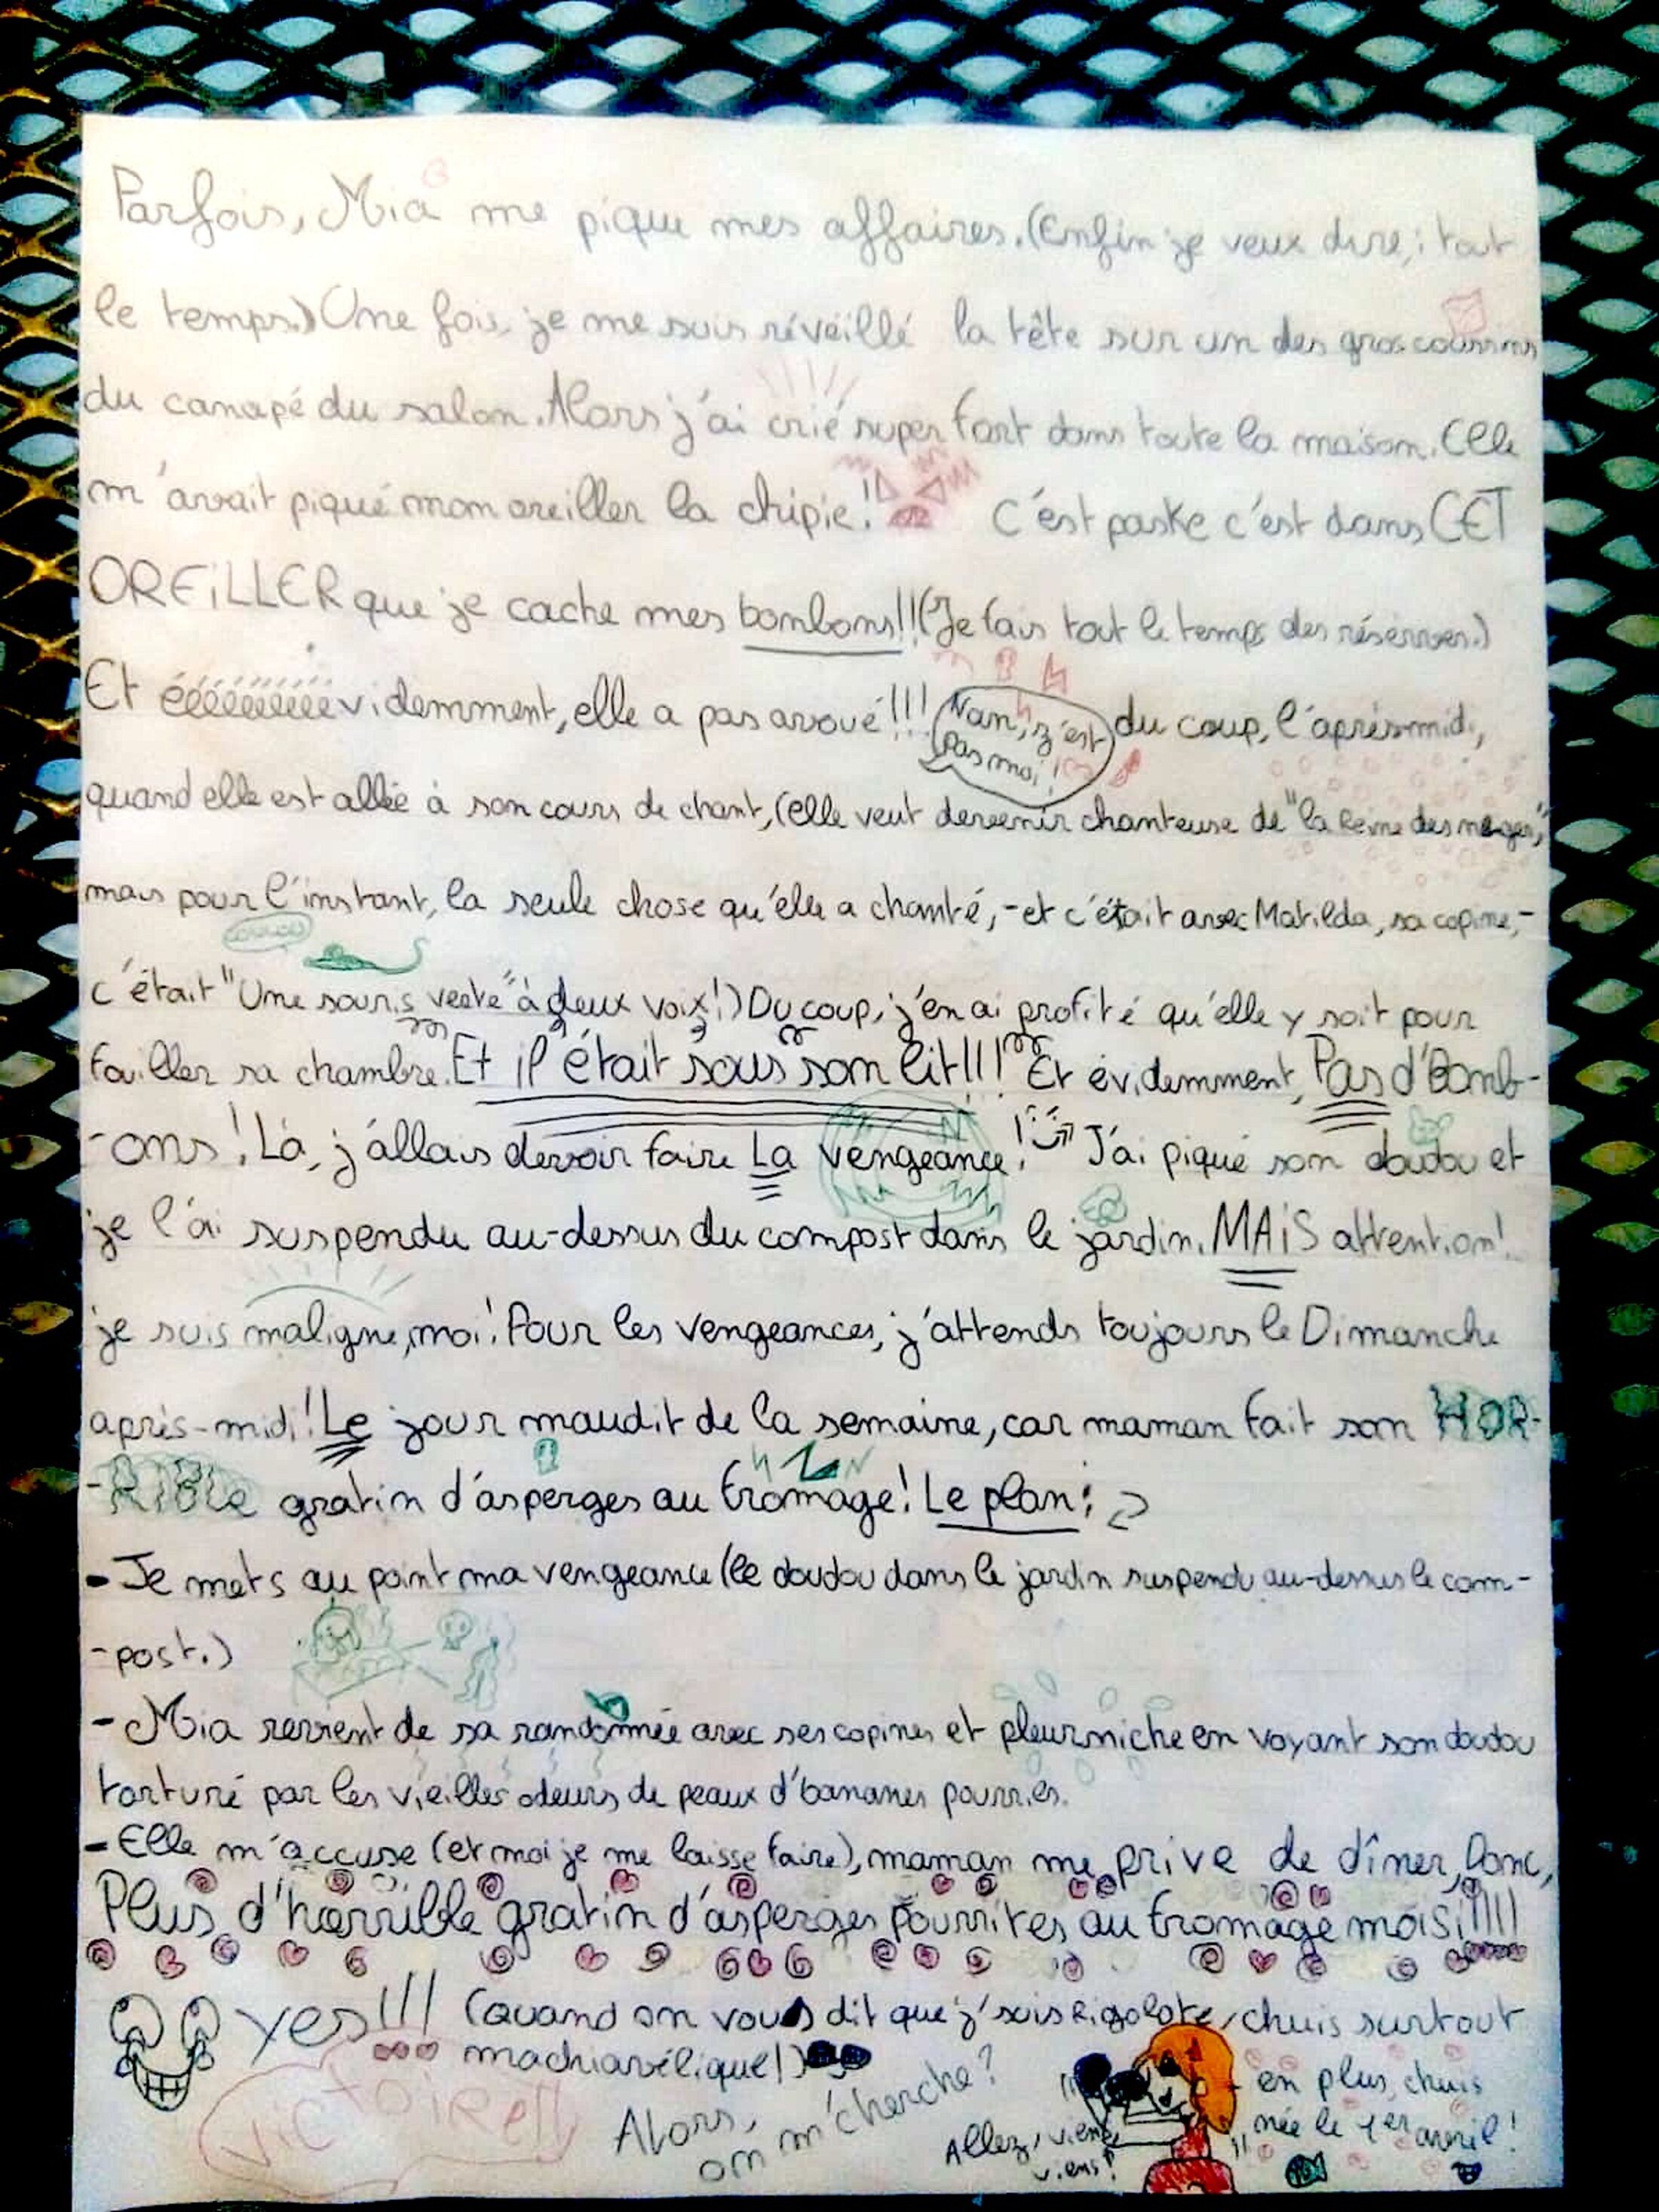 Parfois, Mia me pique mes affaires. (Enfin je veux dire, : tout
le temps.) Une fois, je me suis réveillé la tête sur un des gros coussins
du canapé du salon. Alors j'ai crié super fort dans toute la maison. Elle
m'avait piqué mon oreiller la chipie! C'est paske c'est dans CET
OREiLLER que je cache mes bonbons!! (Je fais tout le temps des réserves.)
Et éééééééééévidemment, elle a pas avoué!!! Nan, z'est pas moi! du coup, l'après-midi,
quand elle est allée à son cours de chant, (elle veut devenir chanteuse de "la Reine des neiges",
mais pour l'instant, la seule chose qu'elle a chanté, - et c'était avec Matilda, sa copine, -
c'était "Une souris verte" à deux voix!) Du coup, j'en ai profité qu'elle y soit pour
fouiller sa chambre. Et il était sous son lit!!! Et évidemment, Pas d'Bomb-
-ons! Là, j'allais devoir faire La vengeance! J'ai piqué son doudou et
je l'ai suspendu au-dessus du compost dans le jardin. MAiS attention!
je suis maligne, moi! Pour les vengeances, j'attends toujours le Dimanche
après-midi! Le jour maudit de la semaine, car maman fait son HOR-
-RIBLe gratin d'asperges au fromage! Le plan :
- Je mets au point ma vengeance (le doudou dans le jardin suspendu au-dessus le com-
-post.)
- Mia revient de sa randonnée avec ses copines et pleurniche en voyant son doudou
torturé par les vieilles odeurs de peaux d'bananes pourries.
- Elle m'accuse (et moi je me laisse faire), maman me prive de dîner, Donc,
Plus d'horrible gratin d'asperges pourrites au fromage moisi!!!!!
yes!!! (Quand on vous dit que j'suis Rigolote, chuis surtout
machiavélique!)
Victoire!!
Alors, on m'cherche?
Allez, viens, viens!
en plus, chuis
née le 1er avril!